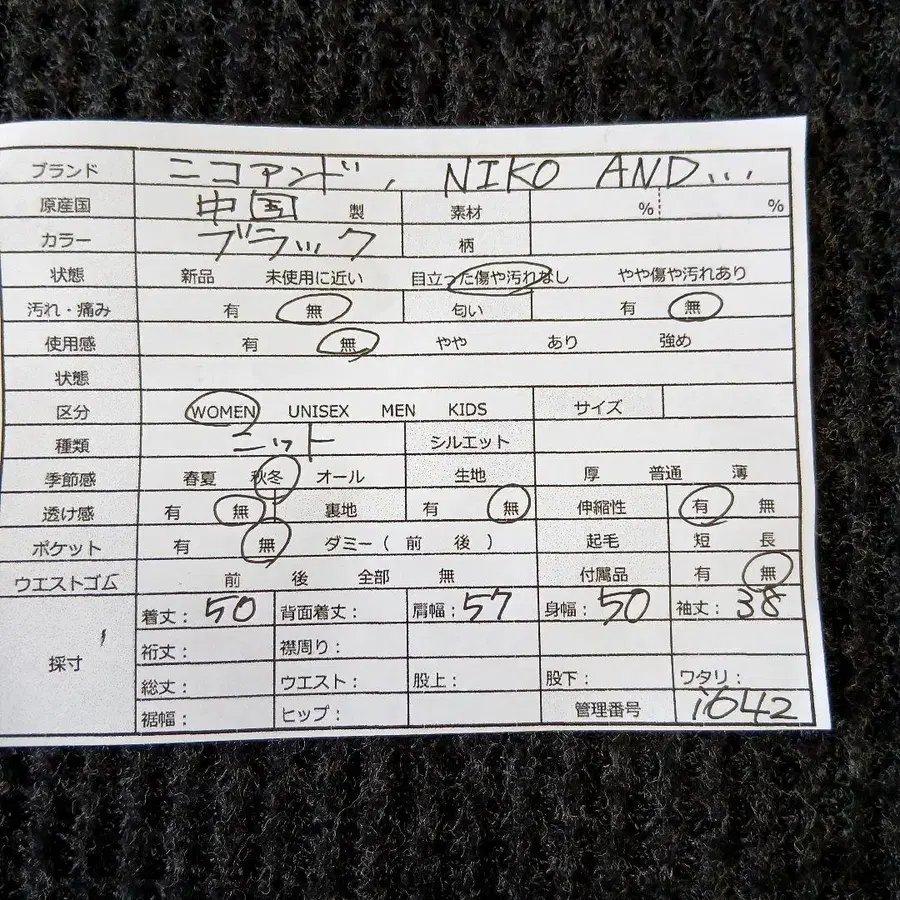 ブランド ニコアンド, NIKO AND...
原産国 中国 製 素材 % %
カラー ブラック 柄
状態 新品 未使用に近い 目立った傷や汚れなし やや傷や汚れあり
汚れ・痛み 有 無 匂い 有 無
使用感 有 無 やや あり 強め
状態
区分 WOMEN UNISEX MEN KIDS サイズ
種類 ニット シルエット
季節感 春夏 秋冬 オール 生地 厚 普通 薄
透け感 有 無 裏地 有 無 伸縮性 有 無
ポケット 有 無 ダミー ( 前 後 ) 起毛 短 長
ウエストゴム 前 後 全部 無 付属品 有 無
採寸 着丈: 50 背面着丈: 肩幅: 57 身幅: 50 袖丈: 38
裄丈: 襟周り:
総丈: ウエスト: 股上: 股下: ワタリ:
裾幅: ヒップ: 管理番号 i642